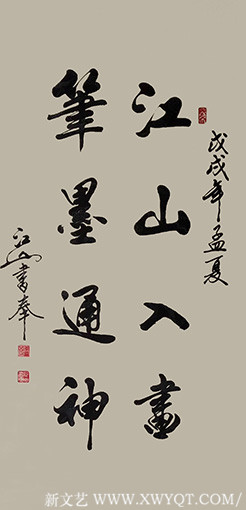 戊戌年孟夏
江山入畫
筆墨通神
江山書奉
新文艺 WWW.XWYQT.COM